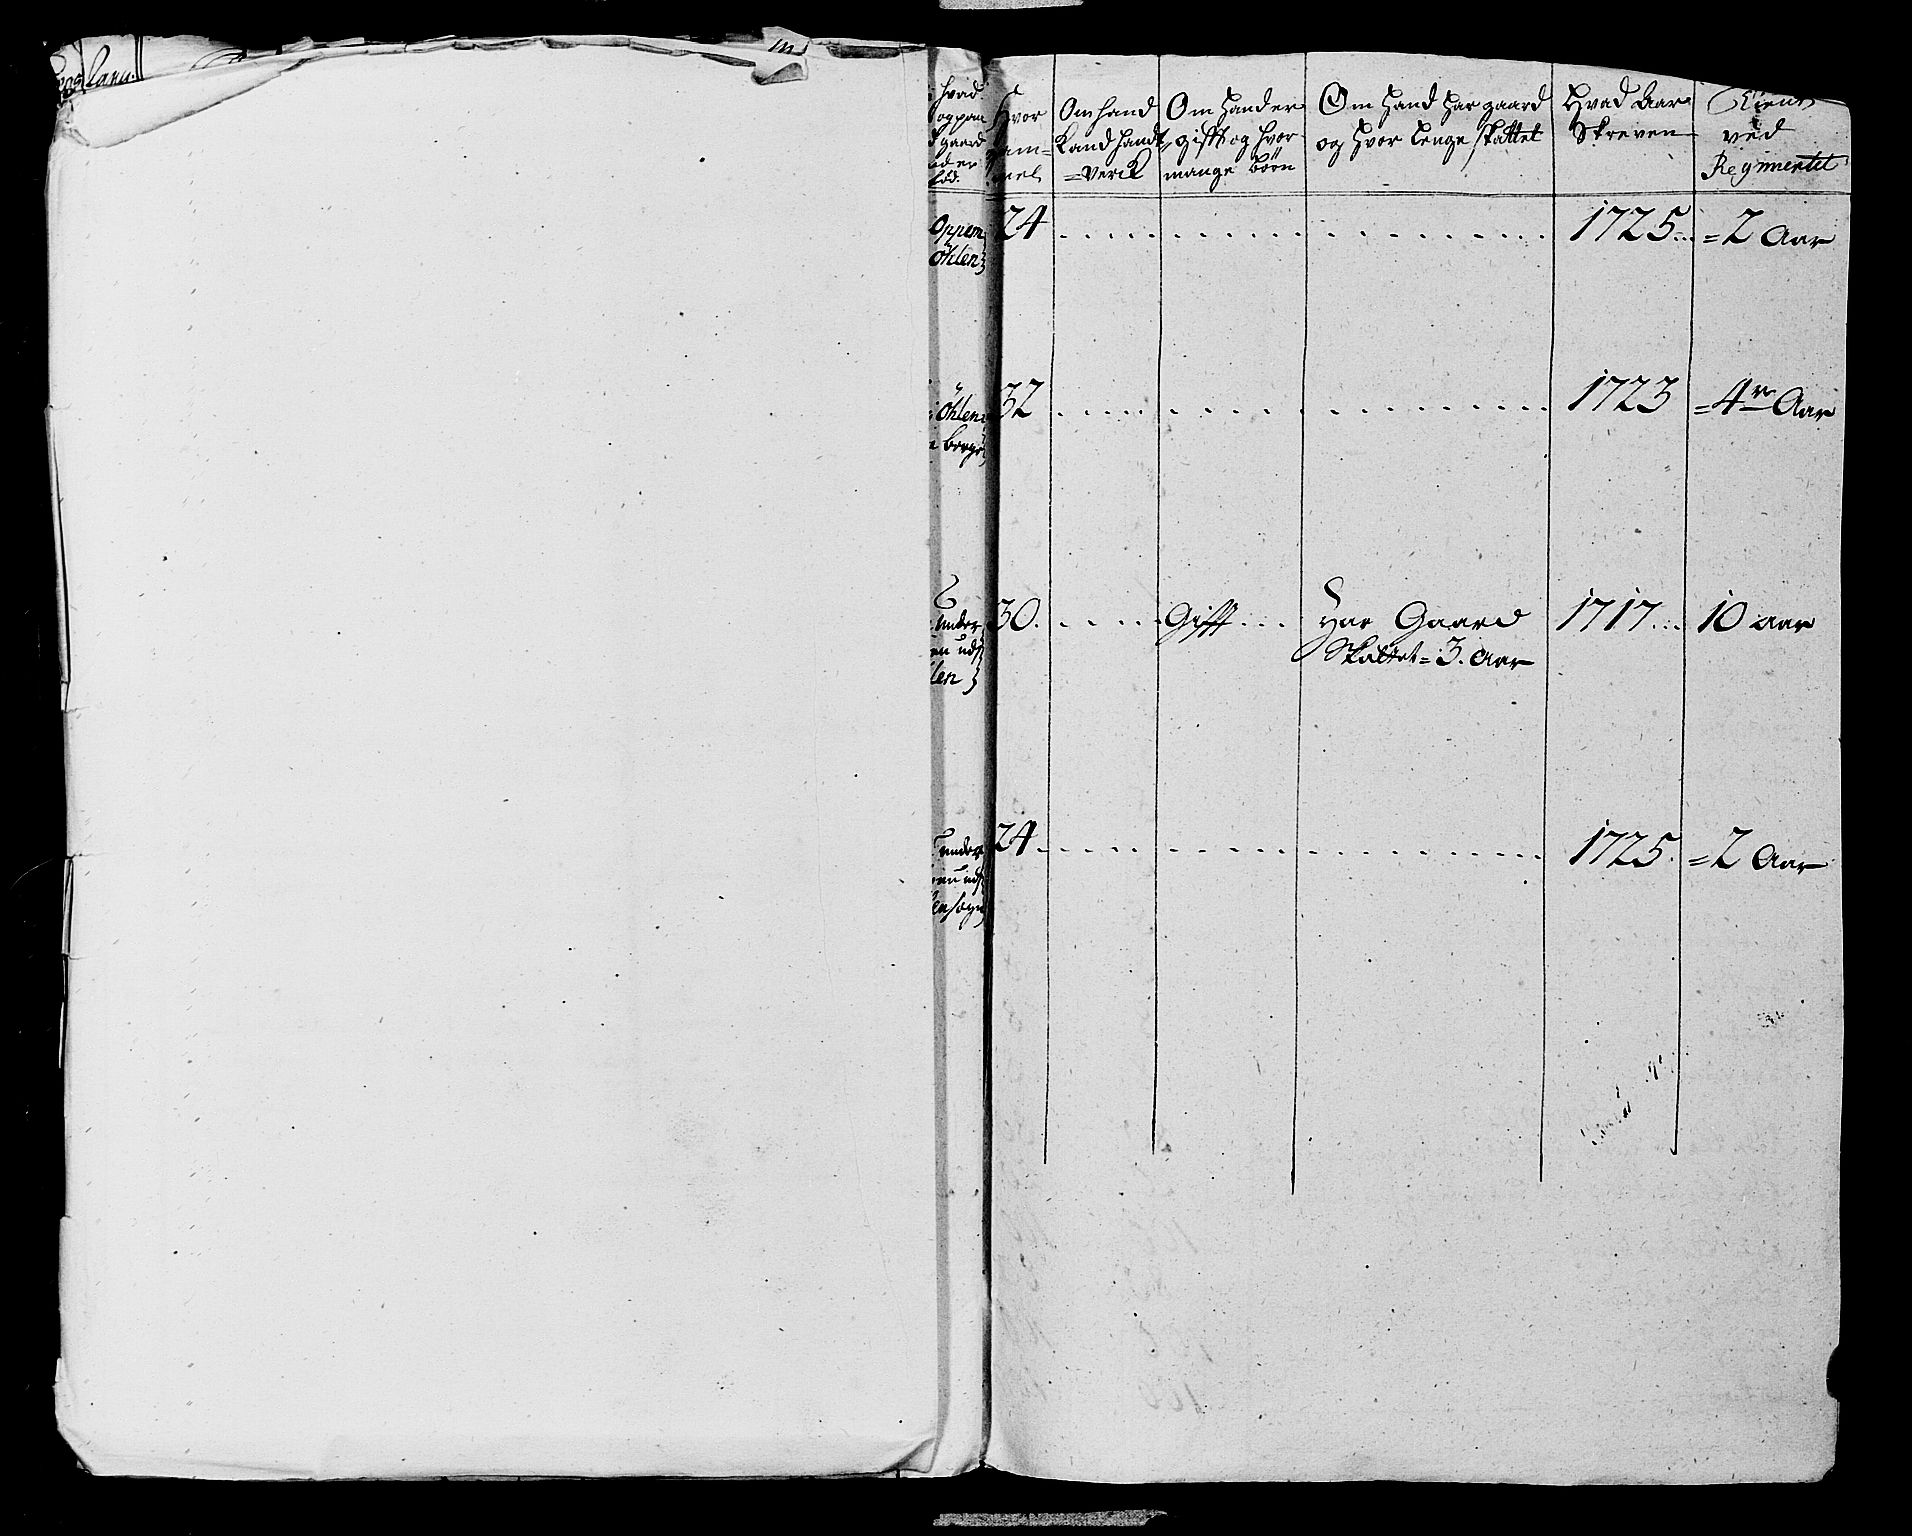 hvad
Hvor
gam=
mel
Om hand
kand handt
=verck
Om hand er
gifft og hvor
mange börn
Om hand har gaard
og hvor lenge skattet
Hvad Aar
Skreven
Tient
ved
Regimentet
Oppem
Öhlen
24
1725
=2 Aar
Öhlen
berge
32
1723
=4re Aar
under
en uds
len
30.
Gifft
Har Gaard
Skattet = 3. Aar
1717
10 aar
under
uds
sogn
24
1725.
=2 Aar